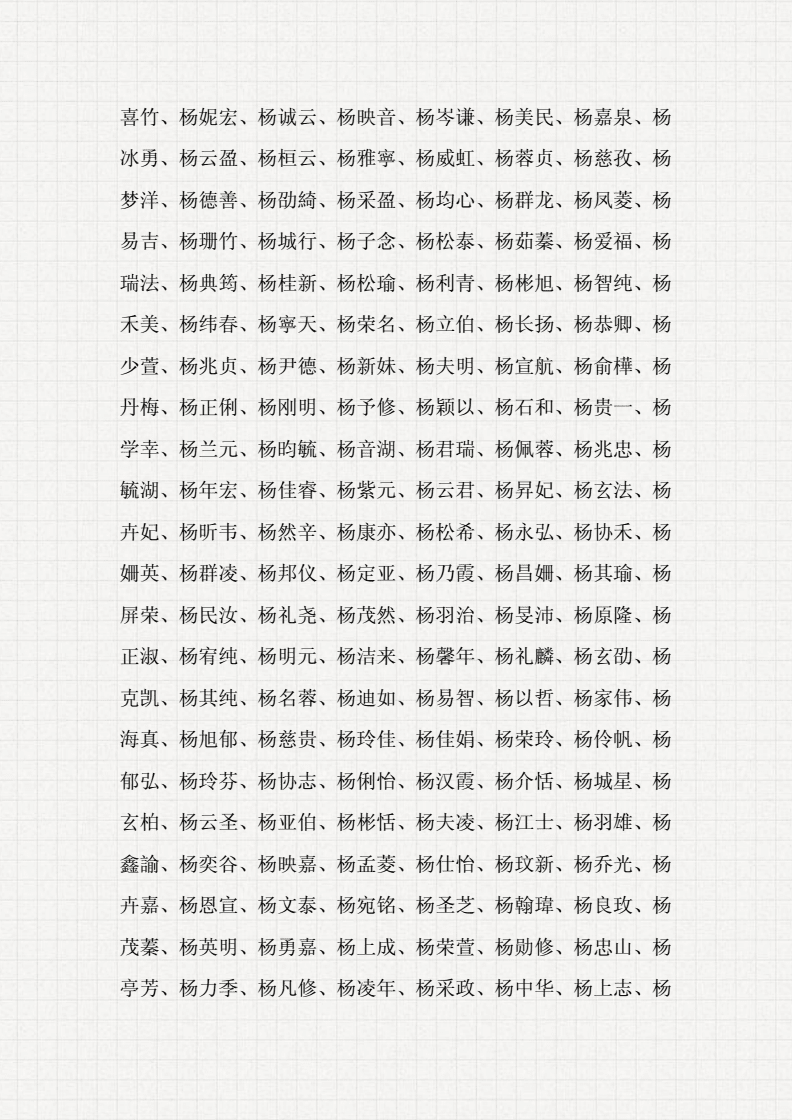 喜竹、杨妮宏、杨诚云、杨映音、杨岑谦、杨美民、杨嘉泉、杨
冰勇、杨云盈、杨桓云、杨雅寧、杨威虹、杨蓉贞、杨慈孜、杨
梦洋、杨德善、杨劭綺、杨采盈、杨均心、杨群龙、杨凤菱、杨
易吉、杨珊竹、杨城行、杨子念、杨松泰、杨茹蓁、杨爱福、杨
瑞法、杨典筠、杨桂新、杨松瑜、杨利青、杨彬旭、杨智纯、杨
禾美、杨纬春、杨寧天、杨荣名、杨立伯、杨长扬、杨恭卿、杨
少萱、杨兆贞、杨尹德、杨新妹、杨夫明、杨宣航、杨俞樺、杨
丹梅、杨正俐、杨刚明、杨予修、杨颖以、杨石和、杨贵一、杨
学幸、杨兰元、杨昀毓、杨音湖、杨君瑞、杨佩蓉、杨兆忠、杨
毓湖、杨年宏、杨佳睿、杨紫元、杨云君、杨昇妃、杨玄法、杨
卉妃、杨昕韦、杨然辛、杨康亦、杨松希、杨永弘、杨协禾、杨
姗英、杨群凌、杨邦仪、杨定亚、杨乃霞、杨昌姗、杨其瑜、杨
屏荣、杨民汝、杨礼尧、杨茂然、杨羽治、杨旻沛、杨原隆、杨
正淑、杨宥纯、杨明元、杨洁来、杨馨年、杨礼麟、杨玄劭、杨
克凯、杨其纯、杨名蓉、杨迪如、杨易智、杨以哲、杨家伟、杨
海真、杨旭郁、杨慈贵、杨玲佳、杨佳娟、杨荣玲、杨伶帆、杨
郁弘、杨玲芬、杨协志、杨俐怡、杨汉霞、杨介恬、杨城星、杨
玄柏、杨云圣、杨亚伯、杨彬恬、杨夫凌、杨江士、杨羽雄、杨
鑫諭、杨奕谷、杨映嘉、杨孟菱、杨仕怡、杨玟新、杨乔光、杨
卉嘉、杨恩宣、杨文泰、杨宛铭、杨圣芝、杨翰瑋、杨良玫、杨
茂蓁、杨英明、杨勇嘉、杨上成、杨荣萱、杨勋修、杨忠山、杨
亭芳、杨力季、杨凡修、杨凌年、杨采政、杨中华、杨上志、杨